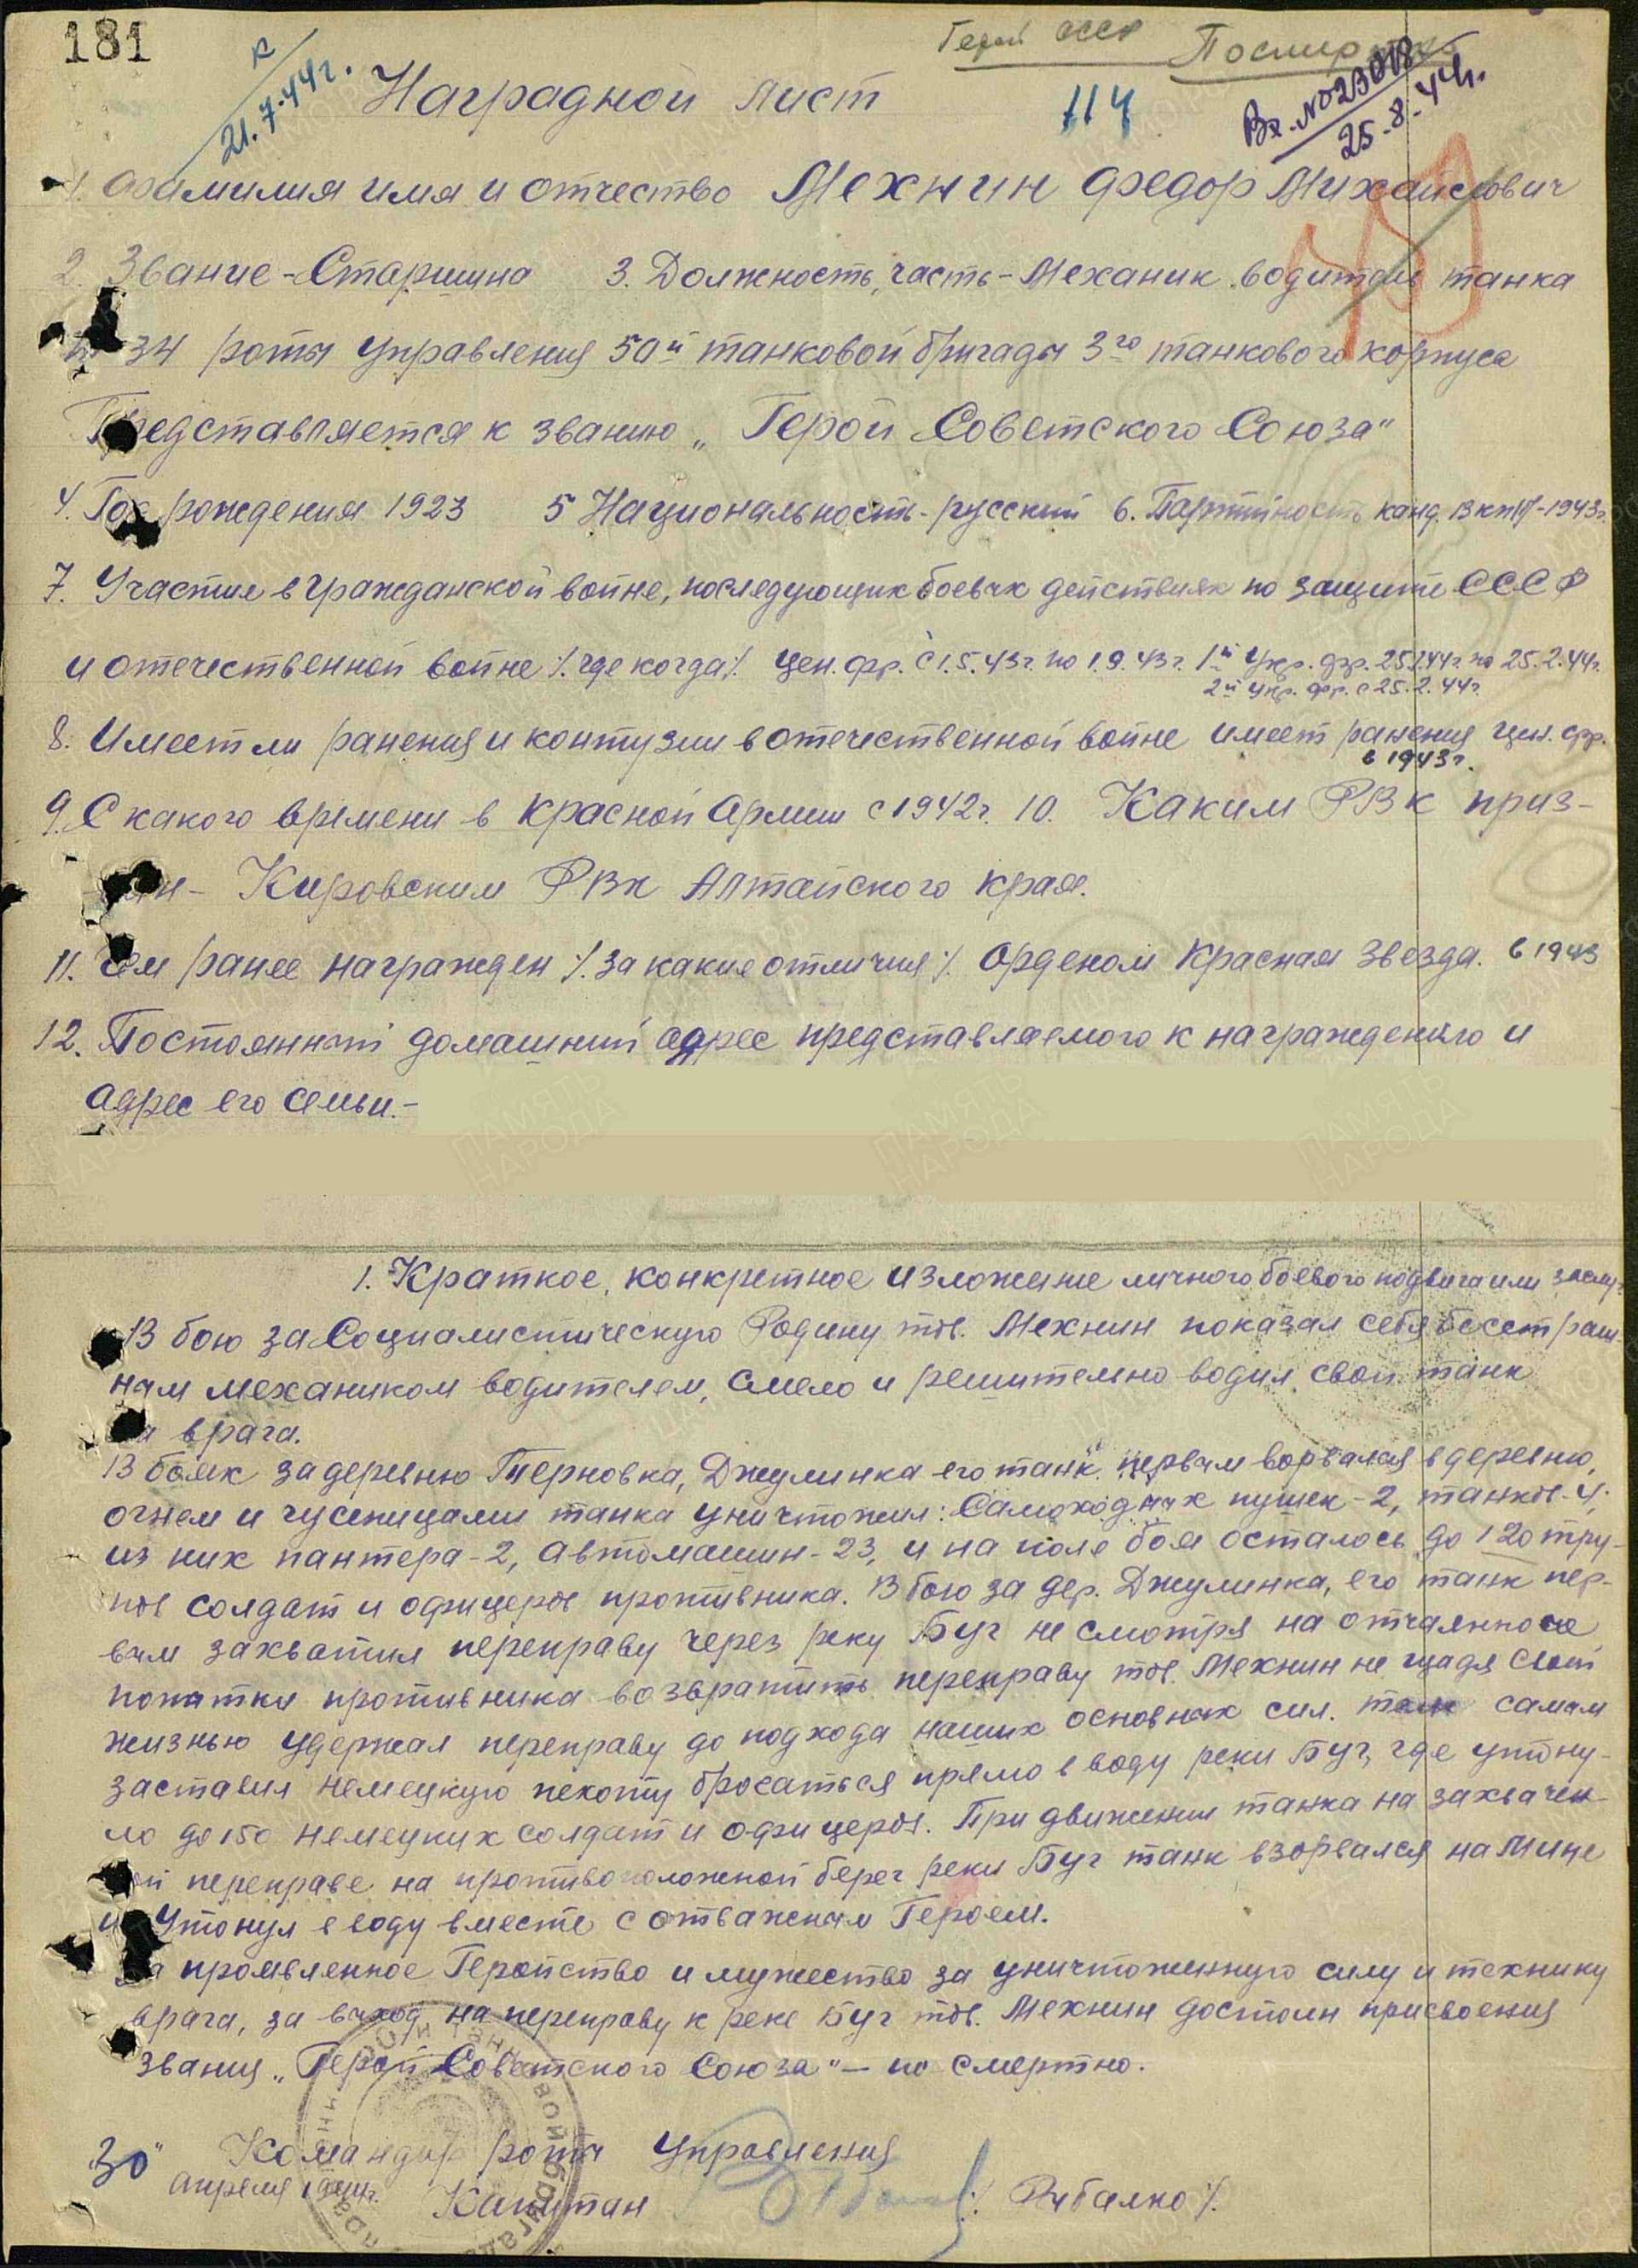 181
к
21.7.44г.
Герой СССР
Посмертно
Наградной лист
114
Вх. №23018
25.8.44г.
1. Фамилия имя и отчество Мехнин Федор Михайлович
2. Звание - Старшина 3. Должность, часть - Механик водитель танка
34 роты управления 50й танковой бригады 3го танкового корпуса
Представляется к званию „Герой Советского Союза"
4. Год рождения 1923 5 Национальность - русский 6. Партийность канд. ВКП/б/-1943г.
7. Участие в гражданской войне, последующих боевых действиях по защите СССР
и отечественной войне /.где когда/. Цен. фр. с 1.5.43г. по 1.9.43г. 1й Укр. фр. 25.1.44г. по 25.2.44г.
2й Укр. фр. с 25.2.44г.
8. Имеет ли ранения и контузии в отечественной войне имеет ранения цен. фр.
в 1943г.
9. С какого времени в красной Армии с 1942г. 10. Каким РВК приз-
ван - Кировским РВК Алтайского края.
11. Чем ранее награжден /.за какие отличия/. Орденом Красная Звезда. в 1943
12. Постоянный домашний адрес представляемого к награждению и
адрес его семьи. -
ПАМЯТЬ НАРОДА
1. Краткое, конкретное изложение личного боевого подвига или заслуг
В бою за Социалистическую Родину тов. Мехнин показал себя бесстраш-
ным механиком водителем, смело и решительно водил свой танк
на врага.
В боях за деревню Терновка, Джулинка его танк первым ворвался в деревню,
огнем и гусеницами танка уничтожил: Самоходных пушек - 2, танков - 4.
из них пантера - 2, автомашин - 23, и на поле боя осталось до 120 тру-
пов солдат и офицеров противника. В бою за дер. Джулинка, его танк пер-
вым захватил переправу через реку Буг не смотря на отчаянное
попытки противника возвратить переправу тов. Мехнин не щадя своей
жизнью удержал переправу до подхода наших основных сил. тем самым
заставил немецкую пехоту бросаться прямо в воду реки Буг, где утону-
ло до 150 немецких солдат и офицеров. При движении танка на захвачен-
ной переправе на противоположной берег реки Буг танк взорвался на мине
и утонул в воду вместе с отважным Героем.
За проявленное Геройство и мужество за уничтоженную силу и технику
врага, за выход на переправу к реке Буг тов. Мехнин достоин присвоения
звания „Герой Советского Союза" - по смертно.
Командир роты Управления
30"
апреля 1944г.
Капитан
/. Рыбалко /.